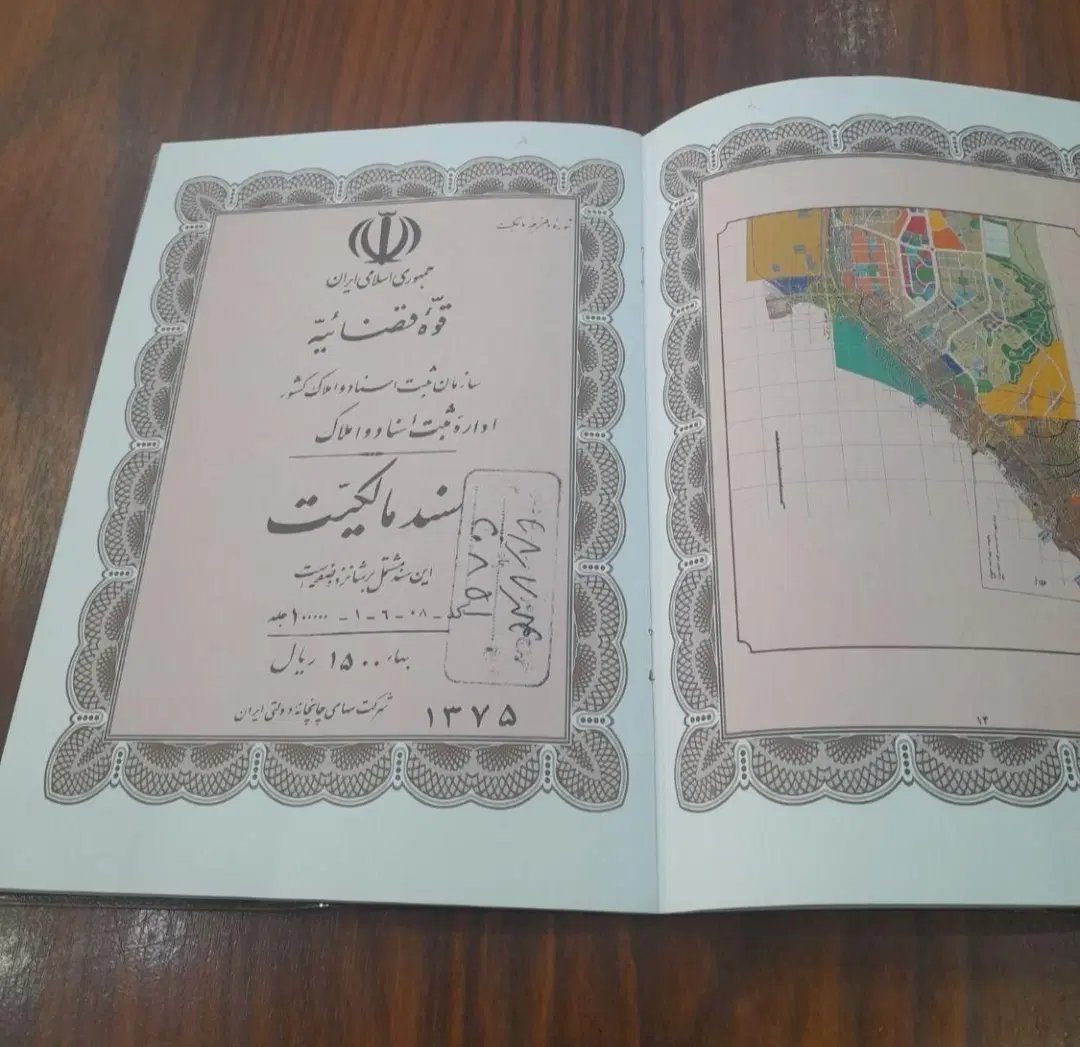 جمهوری اسلامی ایران
قوّهٔ قضائیّه
سازمان ثبت اسناد و املاک کشور
ادارهٔ ثبت اسناد و املاک
سند مالکیّت
این سند مشتمل بر شانزده صفحه است
۱۰۰۰۰۰ - ۱ - ۶ - ۰۸ - جلد
بهاء ۱۵۰۰ ریال
شرکت سهامی چاپخانه دولتی ایران
۱۳۷۵
۱۳